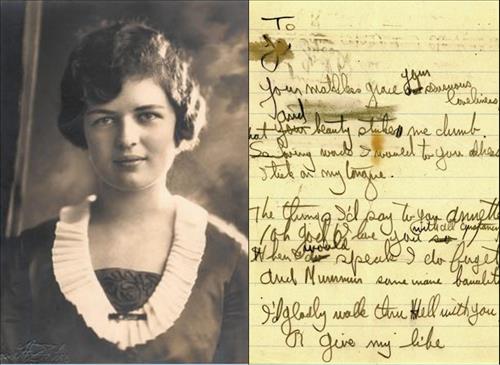 To
J.
Your matchless grace Your
loveliness
and
Your beauty strikes me dumb.
So loving words I would to you
Stick on my tongue.
The things I'd say to you
Oh God I love you so with all
would
When I do speak I do forget
and Murmur some inane
I'd gladly walk thru Hell with you
Or give my life